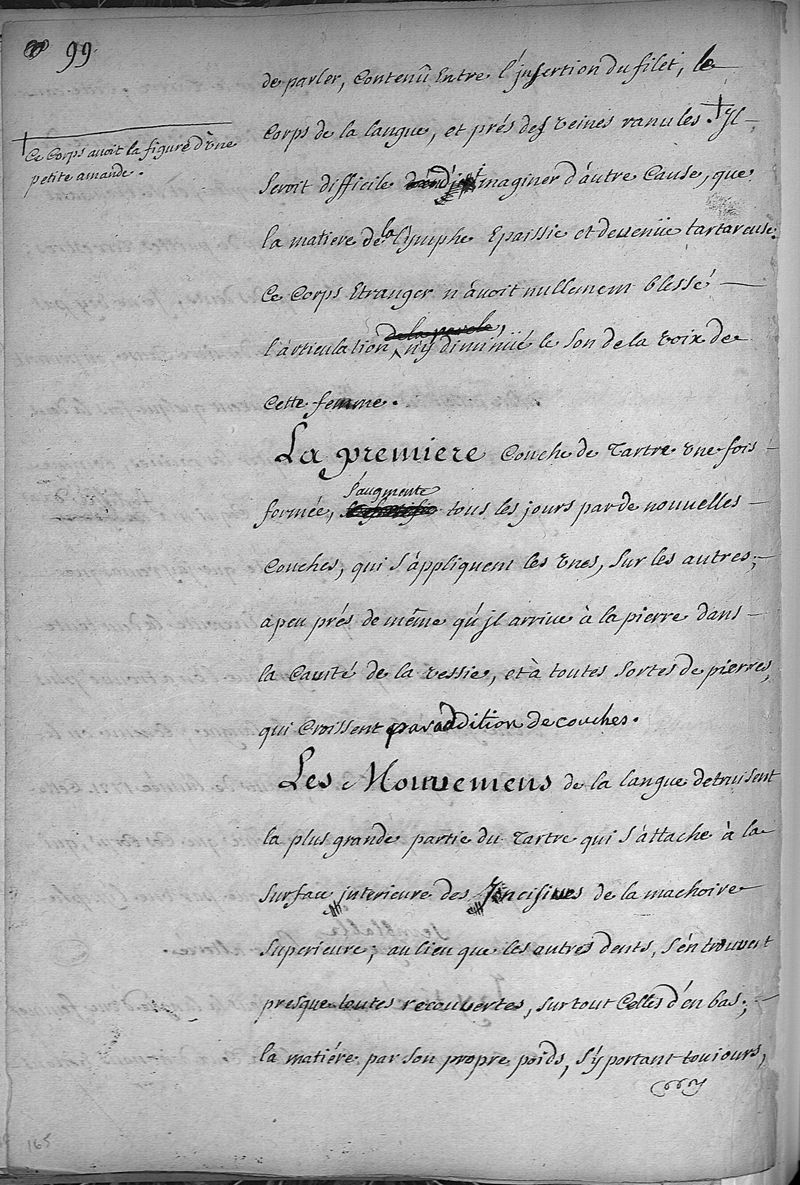 99
de parler, contenû Entre l'jnsertion du filet, le
corps de la langue, et prés des veines ranules † Jl
† Ce corps avoit la figure d'une
petite amande.
seroit difficile d'imaginer d'autre cause, que
la matiere de la lymphe Epaissie et devenüe tartareuse.
Ce corps Etranger n'avoit nullement blessé
l'articulation de la parole, ny diminüé le son de la voix de
cette femme.
La premiere couche de Tartre vne fois
formée, s'augmente tous les jours par de nouvelles
couches, qui s'appliquent les vnes, sur les autres;
apeu prés de même qu'jl arrive à la pierre dans
la cavité de la vessie, et à toutes sortes de pierres,
qui croissent par addition de couches.
Les Mouvemens de la langue detruisent
la plus grande partie du Tartre qui s'attache à la
surface jnterieure des Jncisives de la machoire
superieure; au lieu que les autres dents, s'en trouvent
presque toutes recouvertes, surtout celles d'en bas;
la matiére par son propre poids, s'y portant toujours,
165